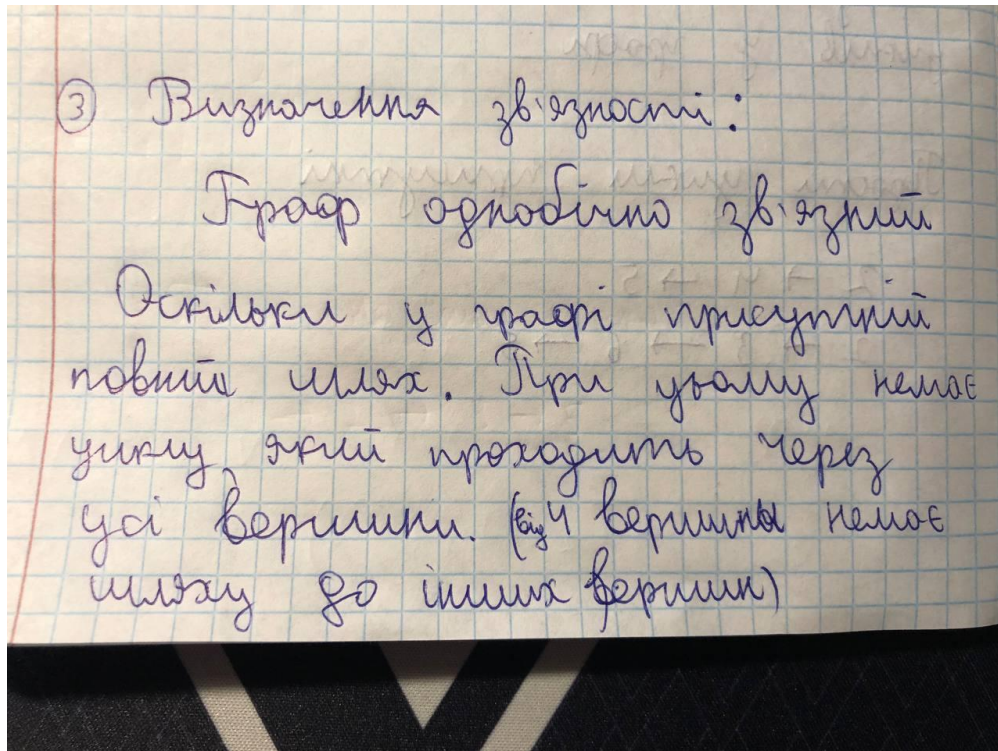 ③ Визначення зв'язності:
Граф однобічно зв'язний
Оскільки у графі присутній
повний шлях. При цьому немає
циклу який проходить через
усі вершини. (від 4 вершины немає
шляху до інших вершин)